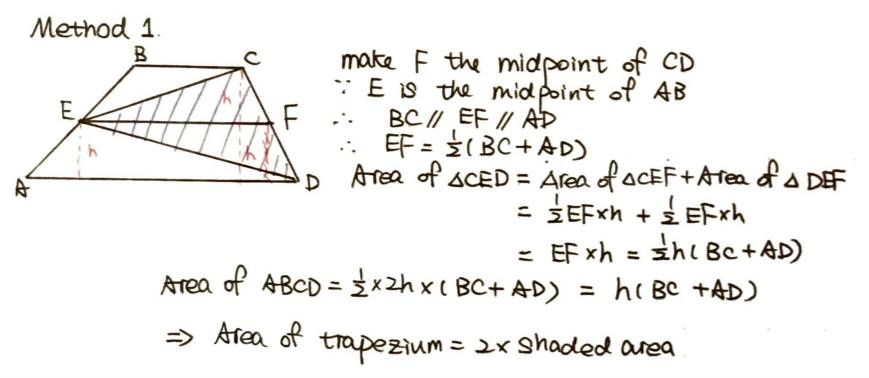 Method 1.
B
C
E
h
F
h
h
A
D
make F the midpoint of CD
∵ E is the midpoint of AB
∴ BC // EF // AD
∴ EF = ½(BC+AD)
Area of △CED = Area of △CEF + Area of △DEF
= ½EF×h + ½EF×h
= EF×h = ½h(BC+AD)
Area of ABCD = ½×2h×(BC+AD) = h(BC+AD)
⇒ Area of trapezium = 2× shaded area